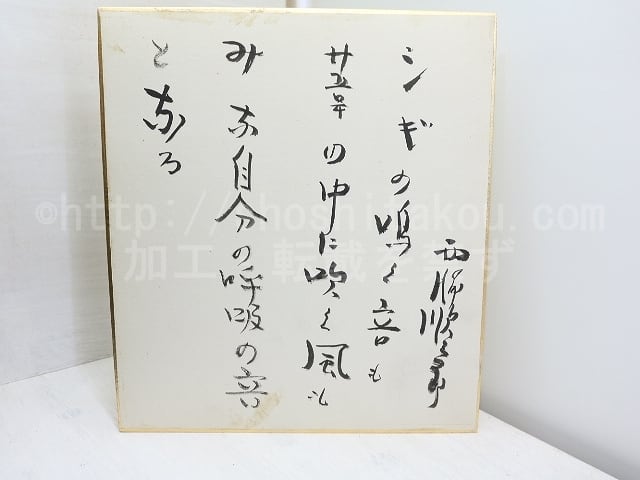 シギの鳴く音も
葦の中に吹く風も
みな自分の呼吸の音
となる
西脇順三郎
加工・転載を禁ず